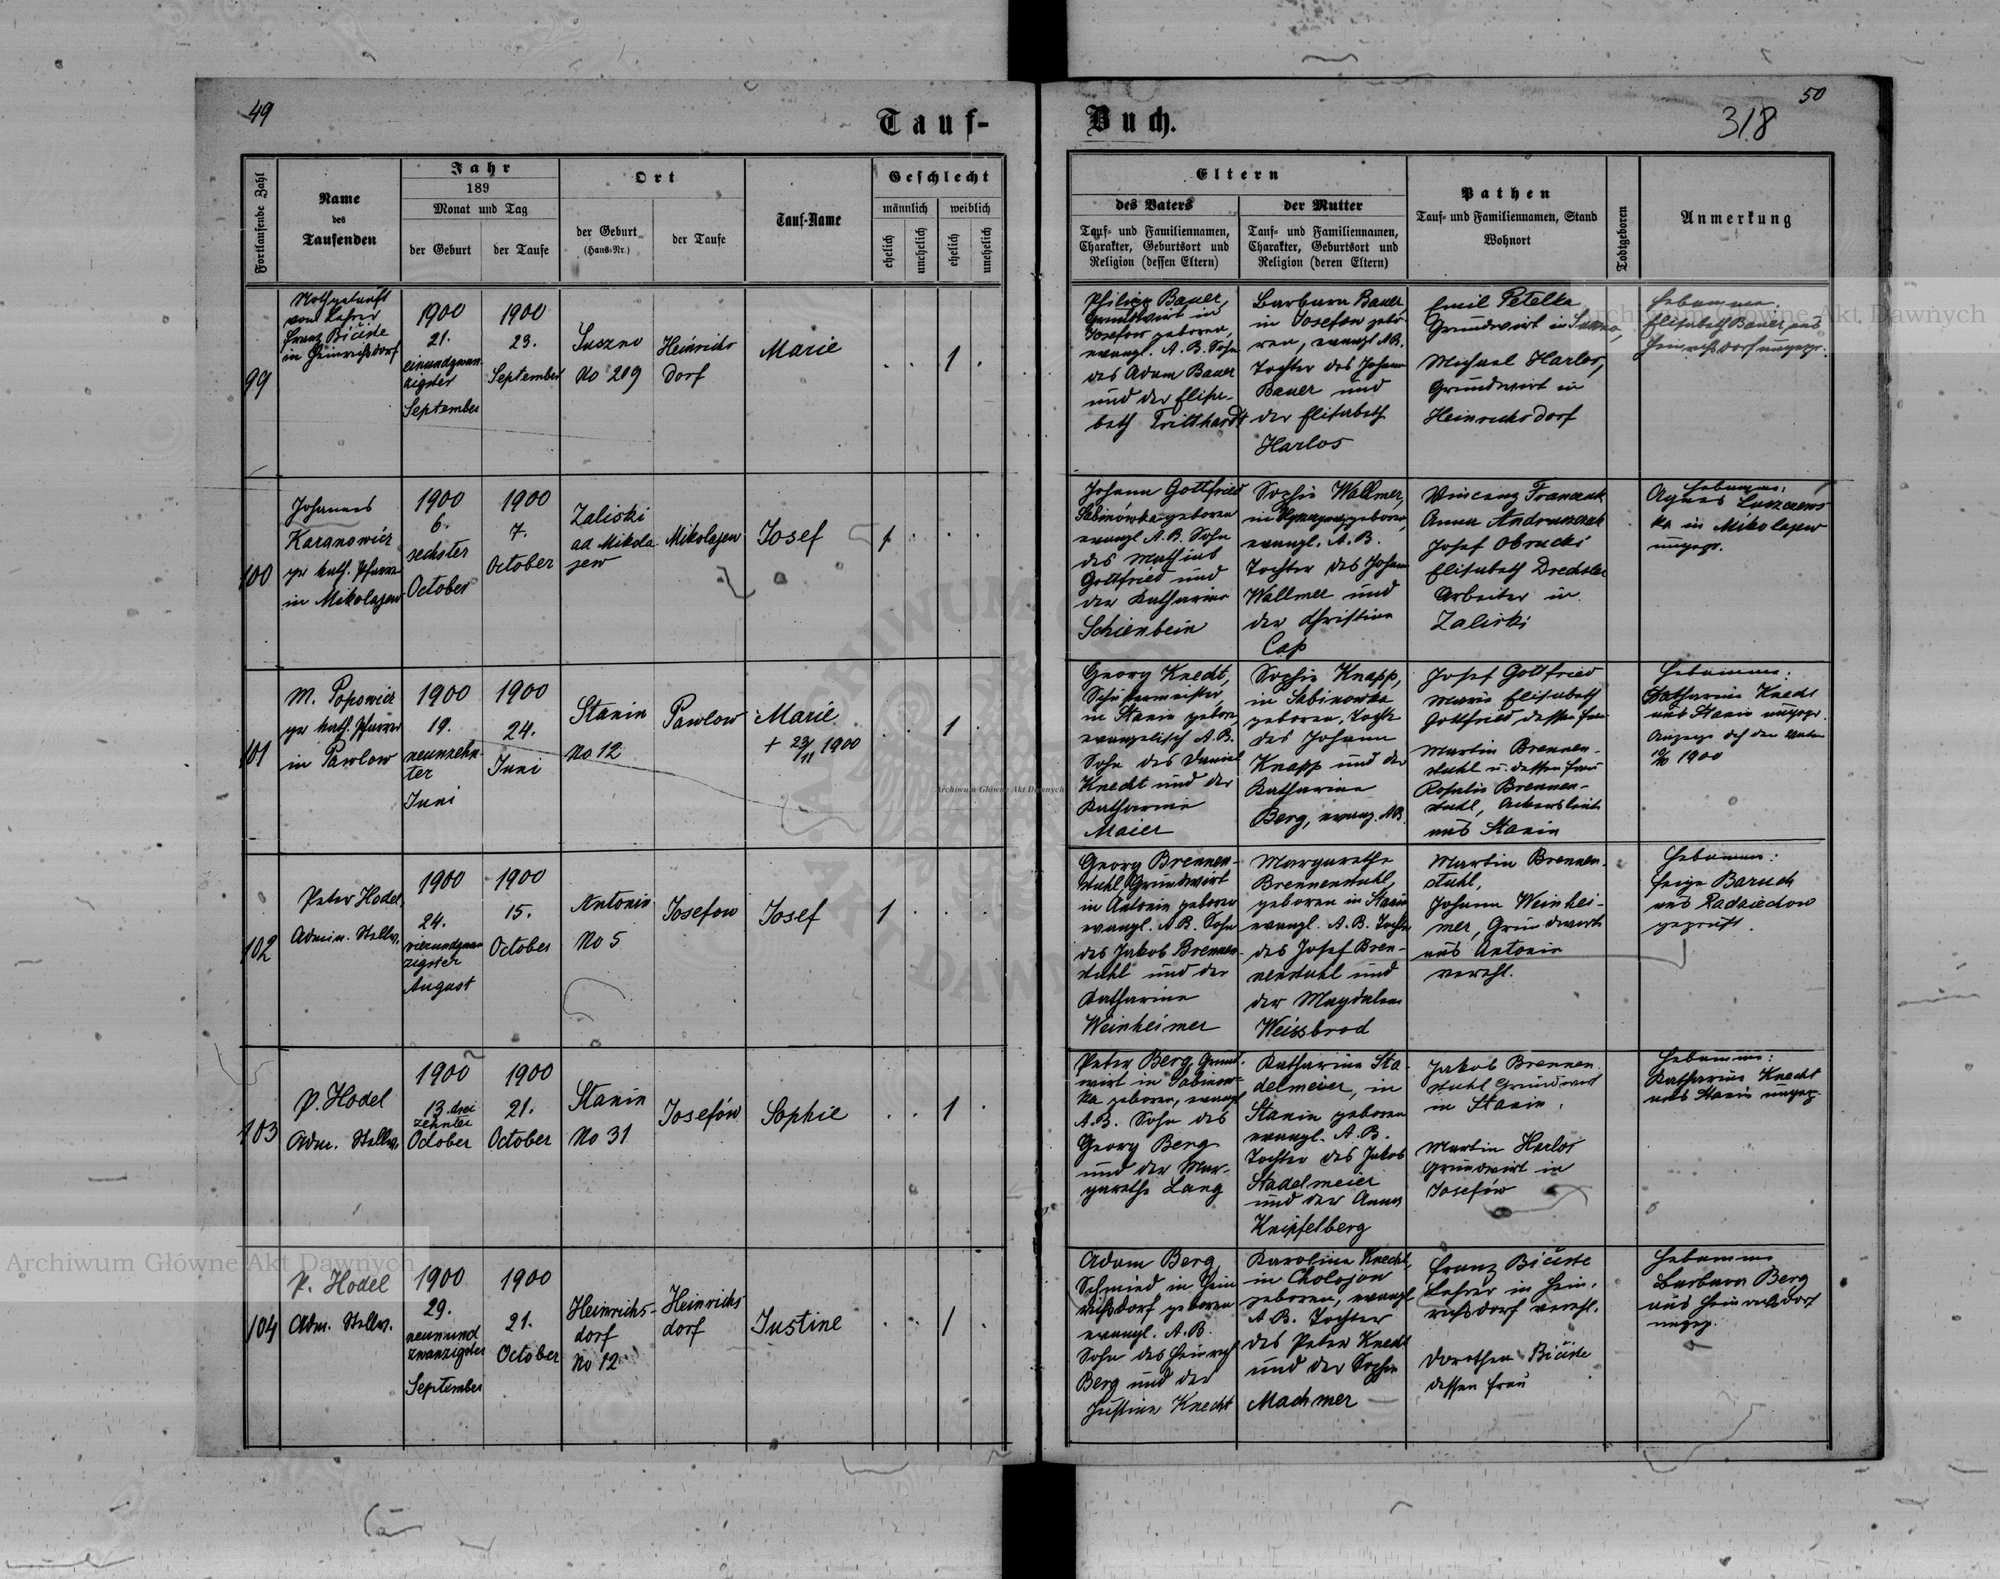 49
50
318
Tauf-
Buch.
Fortlaufende Zahl
Name
des
Taufenden
Jahr
189
Monat und Tag
der Geburt
der Taufe
Ort
der Geburt
(Haus-Nr.)
der Taufe
Tauf-Name
Geschlecht
männlich
weiblich
ehelich
unehelich
ehelich
unehelich
Eltern
des Vaters
Tauf- und Familiennamen,
Charakter, Geburtsort und
Religion (dessen Eltern)
der Mutter
Tauf- und Familiennamen,
Charakter, Geburtsort und
Religion (deren Eltern)
Pathen
Tauf- und Familiennamen, Stand
Wohnort
Todtgeboren
Anmerkung
99
Nothgetauft
vom Lehrer
Franz Bičiste
in Heinrichsdorf
1900
21.
einundzwan-
zigster
September
1900
23.
September
Suszno
No 209
Heinrichs
dorf
Marie
1
Philipp Bauer,
Grundwirt in
Josefow geboren,
evangl. A. B. Sohn
des Adam Bauer
und der Elisa-
beth
Barbara Bauer
in Josefow gebo-
ren, evangl A.B.
Tochter des Johann
Bauer und
der Elisabeth
Harlos
Emil Petelka
Grundwirt in Suszno,
Michael Harlos,
Grundwirt in
Heinrichsdorf
Hebamme:
Elisabeth Bauer aus
Heinrichsdorf ungepr.
100
Johannes
Karanowicz
gr kath. Pfarrer
in Mikolajow
1900
6.
sechster
October
1900
7.
October
Zaliski
ad Mikola
jew
Mikolajew
Josef
1
Johann Gottfried
Sabinówka geboren
evangl A.B. Sohn
des Mathias
Gottfried und
der Katharine
Schienbein
Sophie Wallmer,
in geboren,
evangl. A. B.
Tochter des Johann
Wallmer und
der Christine
Cap
Vincenz Franczuk
Anna Andruszczak
Josef Obrucki
Elisabeth Drechsler
Arbeiter in
Zaliski
Hebamme:
Agnes
ka in Mikolajew
ungepr.
101
M. Popowicz
gr kath. Pfarrer
in Pawlow
1900
19.
neunzehn-
ter
Juni
1900
24.
Juni
Stanin
No 12
Pawlow
Marie
+ 23/11 1900
1
Georg Knecht,
in Stanin gebore,
evangelisch A.B.
Sohn des Daniel
Knecht und der
Katharine
Maier
Sophie Knapp,
in Sabinowka
geboren, Tochter
des Johann
Knapp und der
Katharine
Berg, evang. A.B.
Josef Gottfried
Marie Elisabeth
Gottfried dessen Frau
Martin Brennen-
stuhl u. dessen Frau
Rosalie Brennen-
stuhl, Ackersleute
aus Stanin
Hebamme:
Katharine Knecht
aus Stanin ungepr.
1900
102
Peter Hodel,
Admin. Stellv.
1900
24.
vierundzwan
zigster
August
1900
15.
October
Antonin
No 5
Josefow
Josef
1
Georg Brennen-
stuhl Grundwirt
in Antonin geboren
evangl. A. B. Sohn
des Jakob Brennen-
stuhl und der
Katharine
Weinheimer
Margarethe
Brennenstuhl
geboren in Stanin
evangl. A. B. Tochter
des Josef Bren-
nenstuhl und
der Magdalena
Weissbrod
Martin Brennen-
stuhl,
Johann Weinhei-
mer, Grundwirte
aus Antonin
verehl.
Hebamme:
Feige Baruch
aus Radziechow
geprüft.
103
P. Hodel
Adm. Stellv.
1900
13. drei
zehnter
October
1900
21.
October
Stanin
No 31
Josefów
Sophie
1
Peter Berg, Grund-
wirt in Sabinow-
ka geboren, evangl
A.B. Sohn des
Georg Berg
und der Mar-
garethe Lang
Katharine Sta-
delmeier, in
Stanin geboren
evangl. A. B.
Tochter des Jakob
Stadelmeier
und der Anna
Knipfelberg
Jakob Brennen-
stuhl Grundwirt
in Stanin,
Martin Harlos
Grundwirt in
Josefów
Hebamme:
Katharine Knecht
aus Stanin ungepr.
104
P. Hodel
Adm. Stellv.
1900
29.
neunund
zwanzigster
September
1900
21.
October
Heinrichs-
dorf
No 12
Heinrichs
dorf
Justine
1
Adam Berg
Schmied in Hein
richsdorf geboren
evangl. A. B.
Sohn des Heinrich
Berg und der
Justine Knecht
Karoline Knecht,
in Cholojow
geboren, evangl.
A. B. Tochter
des Peter Knecht
und der Sophie
Machmer
Franz Bičiste
Lehrer in Hein-
richsdorf verehl.
Dorothea Bičiste
dessen Frau
Hebamme
Barbara Berg
aus Heinrichsdorf
ungep.
Archiwum Główne Akt Dawnych
Archiwum Główne Akt Dawnych
Archiwum Główne Akt Dawnych